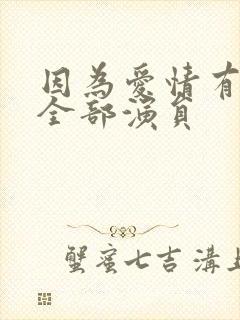 因為愛情有
全部演員
蟹蜜七吉溝上